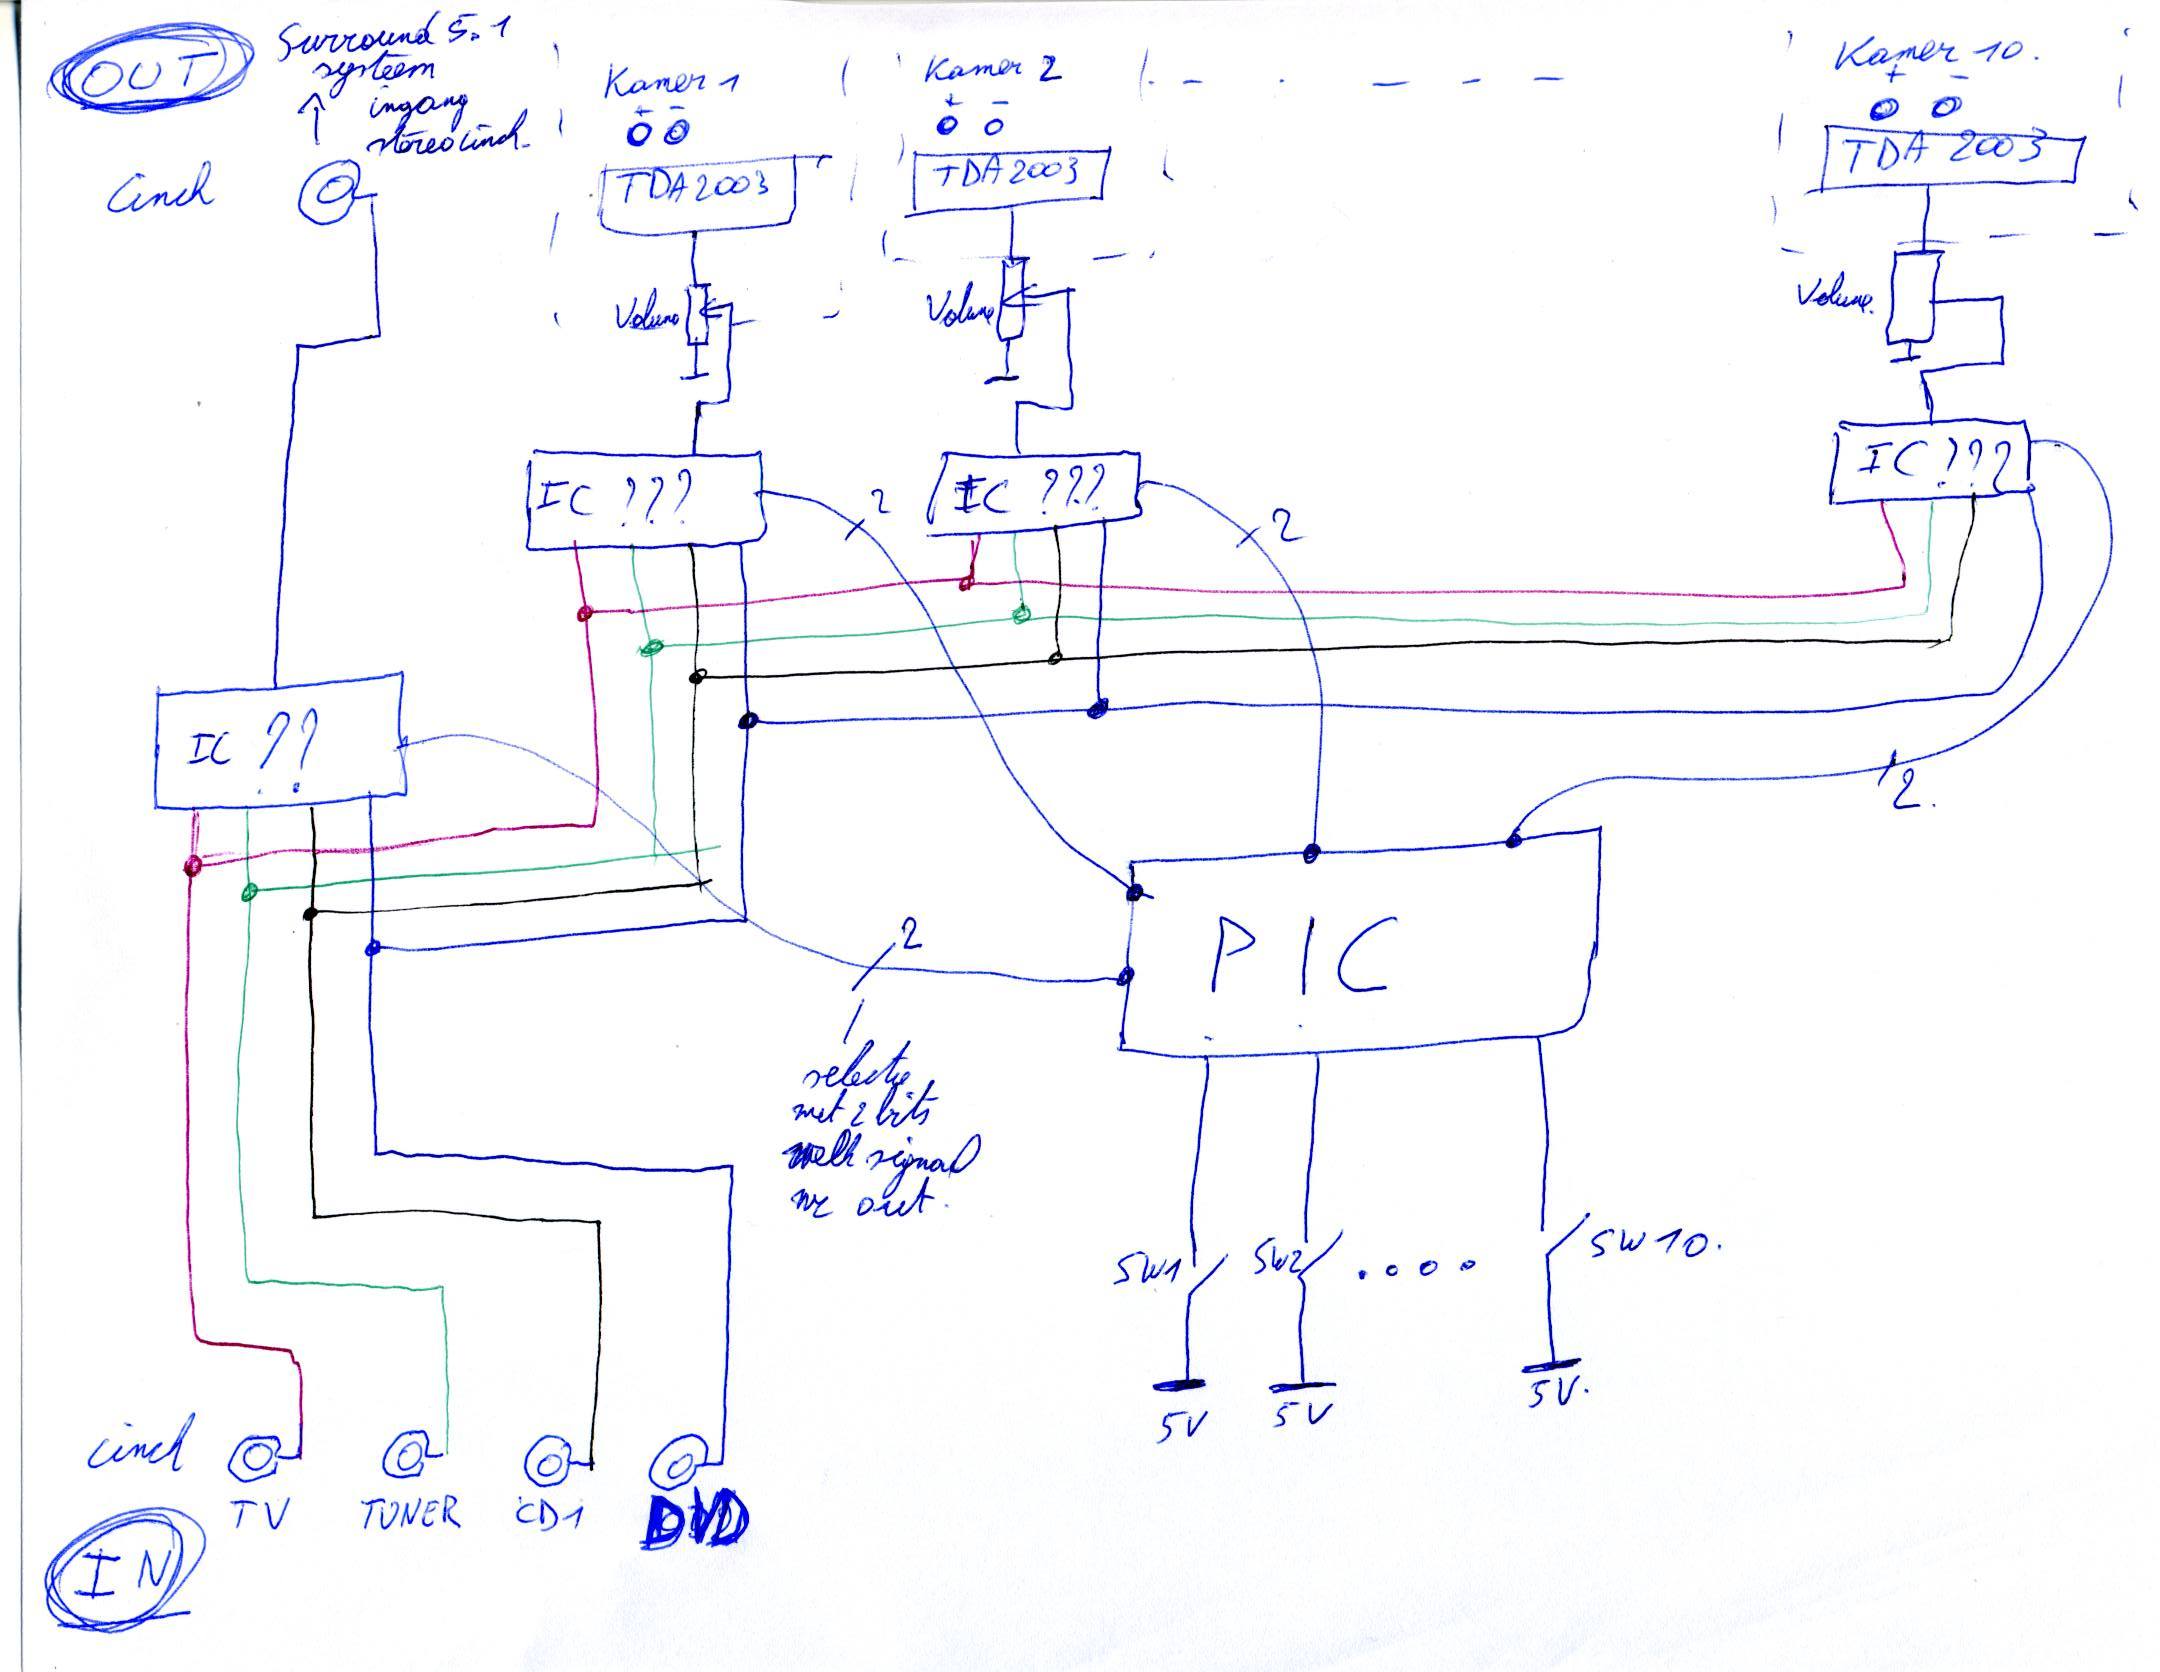 OUT
Surround 5.1
systeem
ingang
stereo cinch.
cinch
Kamer 1
+ -
TDA2003
Volume
Kamer 2
+ -
TDA2003
Volume
Kamer 10.
+ -
TDA 2003
Volume.
IC ???
2
IC ???
2
IC ???
2.
IC ??
2
PIC
selectie
met 2 bits
welk signaal
nr out.
SW1
SW2
SW10.
5V
5V
5V.
cinch
TV
TUNER
CD1
DVD
IN